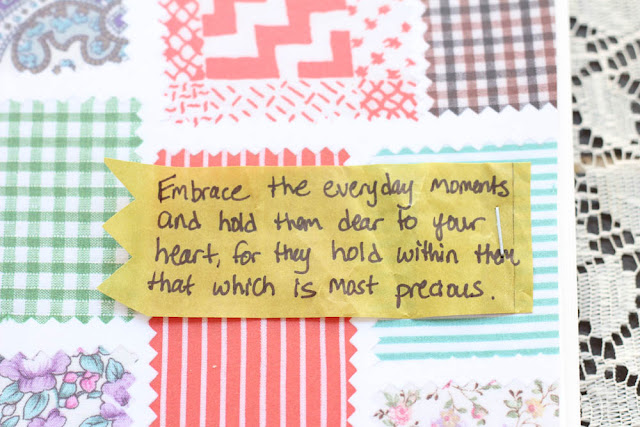 Embrace the everyday moments
and hold them dear to your
heart, for they hold within them
that which is most precious.